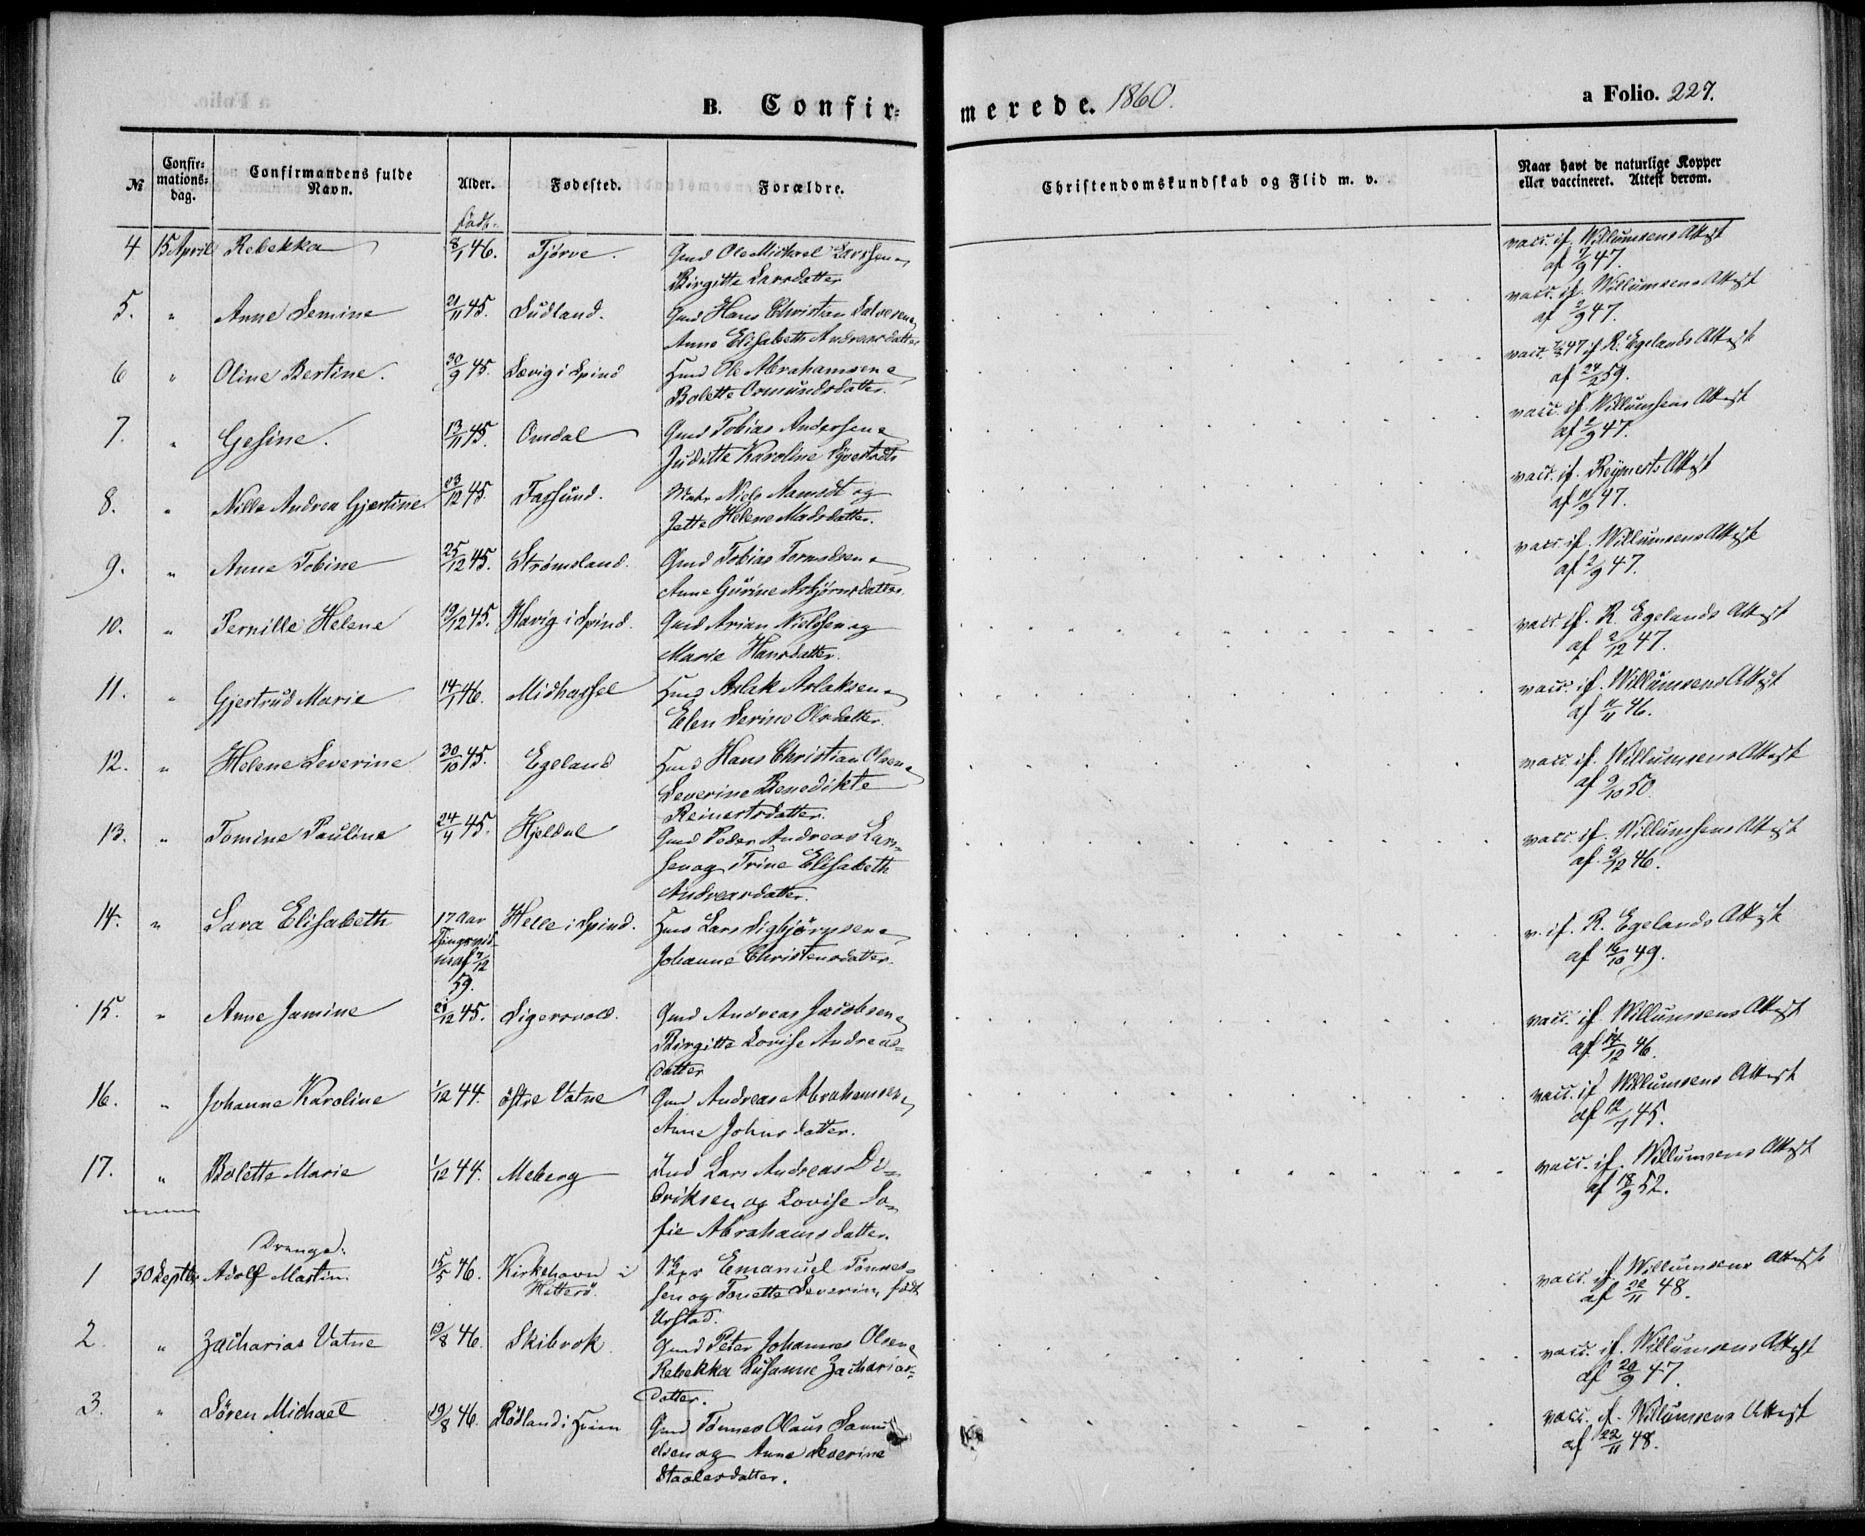 B. Confir-
merede. 1860.
a Folio. 227.
№
Confir-
mations-
dag.
Confirmandens fulde
Navn.
Alder.
Fødested.
Forældre.
Christendomskundskab og Flid m. v.
Naar havt de naturlige Kopper
eller vaccineret. Attest derom.
født.
4 15 April Rebekka 8/1 46. Tjørve. Gmd Ole Michael Larssen
Birgitte Larsdatter
vacc. if. Willumsens Attest
af 2/9 47.
5. " Anne Semine 21/11 45. Sudland. Gmd Hans Christian
Anne Elisabeth Andreasdatter
vacc. if. Willumsens Attest
af 2/9 47.
6 " Oline Bertine. 30/9 45. Lævig i Spind Huusmd Ole Abrahamsen
Bolette Osmundsdatter.
vacc. 47 if R. Egelands Attest
af 24/2 59.
7. " Gesine. 13/11 45. Omdal Gmd Tobias Andersen
Juditte Karoline
vacc. if Willumsens Attest
af 2/9 47.
8. " Nille Andrea Gjertine 23/12 45. Farsund. Matr Niels Aamodt og
Jette Helene Madsdatter.
vacc. if. Reynerts Attest
af 11/9 47.
9. " Anne Tobine 25/12 45. Strømsland. Gmd Tobias
Anne Gurine Asbjørnsdatter
vacc. if. Willumsens Attest
af 2/9 47.
10. " Pernille Helene 19/12 45. Havig i Spind. Gmd Arian Nielssen og
Marie Hansdatter.
vacc. if. R. Egelands Attest
af 2/12 47.
11. " Gjertrud Marie 14/1 46. Midhassel Huusmd Aslak Aslaksen
Elen Serine Olsdatter.
vacc. if. Willumsens Attest
af 11/11 46.
12. " Helene Severine 30/10 45. Egeland Huusmd Hans Christian Olsen
Severine Benedikte
Reinertsdatter.
vacc. if. Willumsens Attest
af 9/10 50.
13. " Tomine Pauline 24/4 45. Hjeldal Gmd Peder Andreas Lar-
sen og Trine Elisabeth
Andreasdatter.
vacc. if. Willumsens Attest
af 3/12 46.
14. " Sara Elisabeth 17 Aar Helle i Spind. Huusmd Lars Sigbjörnsen
Johanne Christensdatter.
af 7/12
59.
v. if. R. Egelands Attest
af 16/10 49.
15. " Anne Jamine 21/12 45. Sigersvold. Gmd Andreas Jacobsen
Birgitte Lovise Andreas-
datter
vacc. if. Willumsens Attest
af 14/12 46.
16. " Johanne Karoline 1/12 44. östre Vatne Gmd Andreas Abrahamsen
Anne Johnsdatter.
vacc. if Willumsens Attest
af 12/7 45.
17. " Bolette Marie 1/12 44. Meberg Ind Lars Andreas Di-
driksen og Lovise So-
fie Abrahamsdatter.
vacc. if. Willumsens Attest
af 18/9 52.
Drenge.
1 30 Septbr Adolf Martin. 15/5 46. Kirkehavn i
Hitterö.
Emanuel Tönnes-
sen og Tonette Severine født
Urstad.
vacc. if Willumsens Attest
af 22/11 48.
2. " Zacharias Vatne 19/8 46. Skibvok Gmd Peter Johannes Olsen
Rebekka Susanne Zacharias-
datter.
vacc. if. Willumsens Attest
af 20/9 47.
3. " Sören Michael 19/8 46. Rödland i Gmd Tönnes Olaus Samu
elsen og Anne Severine
Staalesdatter.
vacc. if. Willumsens Attest
af 22/11 48.